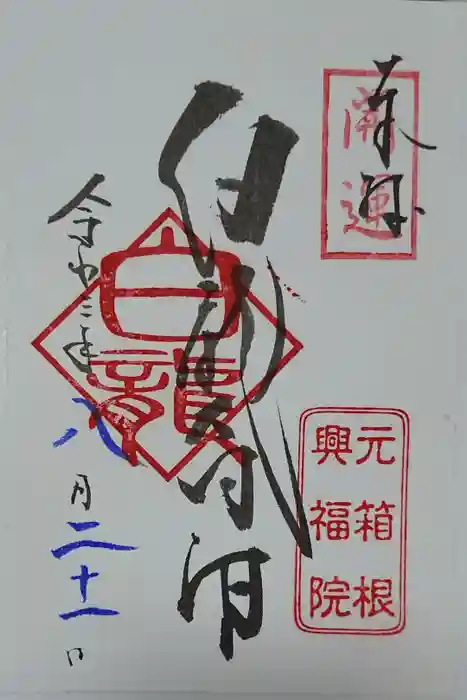 奉拝
開運
元箱根
興福院
白龍
令和三年八月二十一日